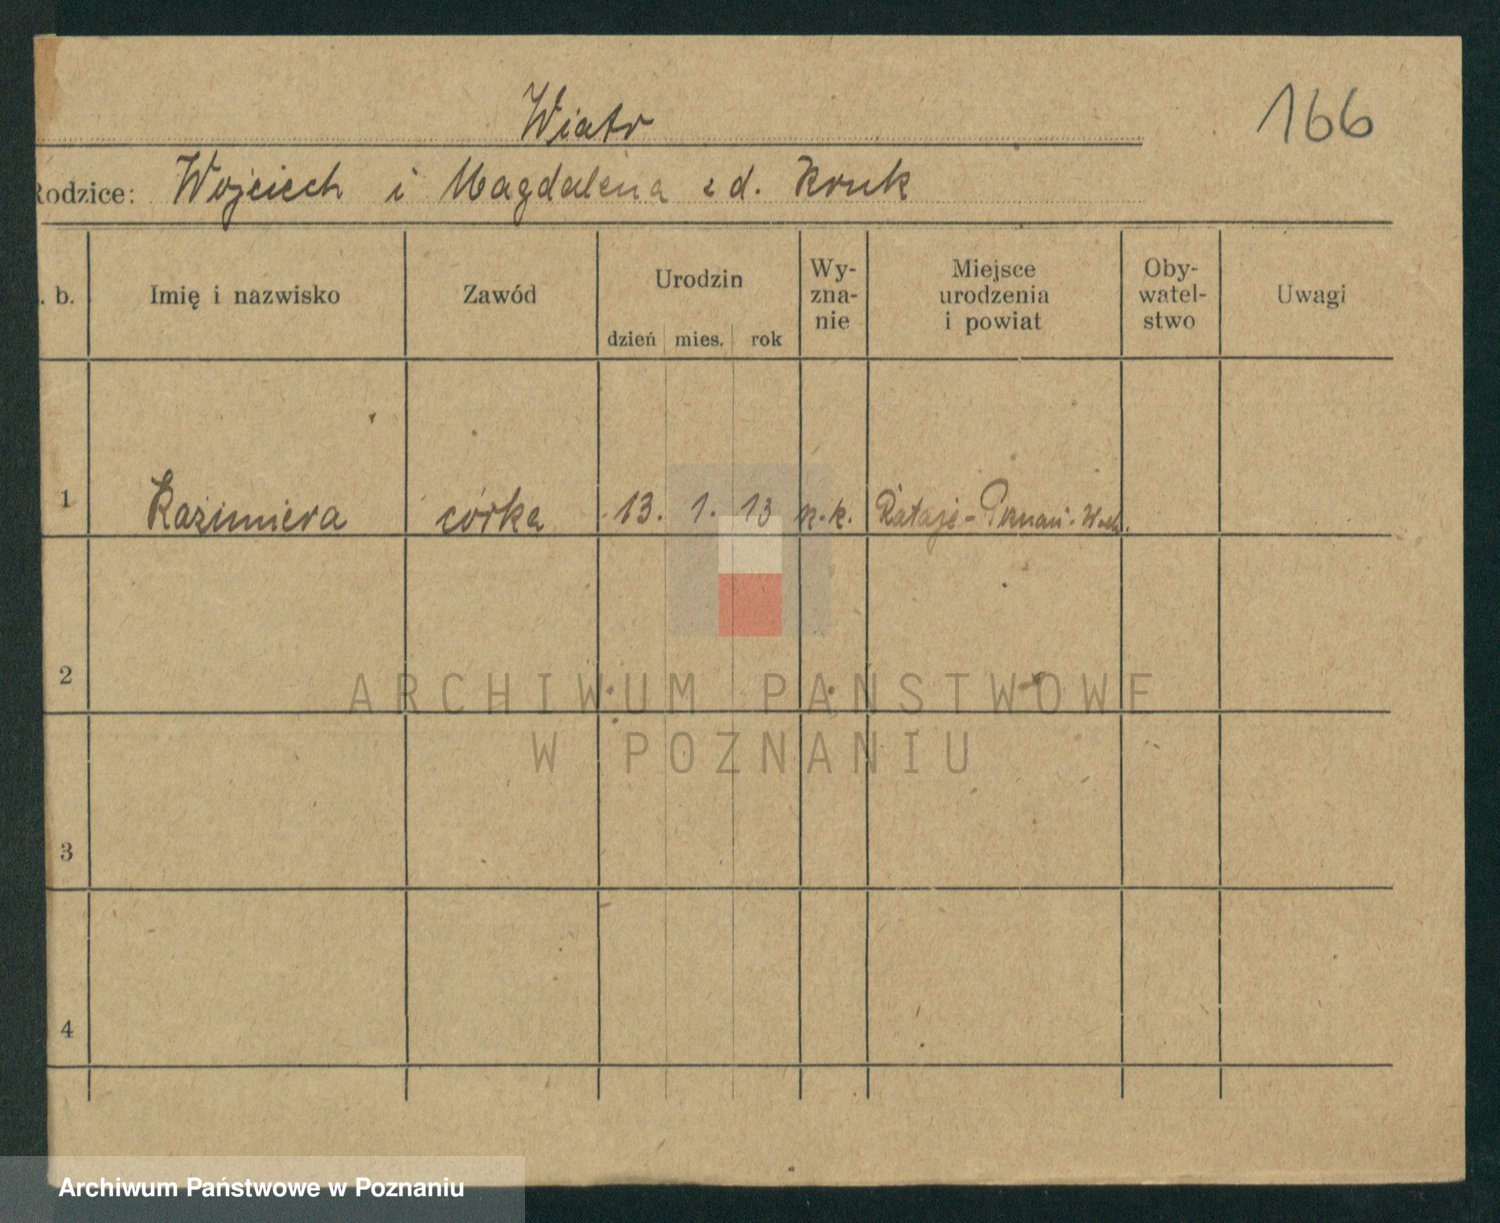 Wiatr
166
Rodzice: Wojciech i Magdalena z d. Kruk
. b.
Imię i nazwisko
Zawód
Urodzin
dzień mies. rok
Wy-
zna-
nie
Miejsce
urodzenia
i powiat
Oby-
watel-
stwo
Uwagi
1 Kazimiera córka 13. 1. 13 r.k. Rataje - Poznań - Wsch.
2
3
4
ARCHIWUM PAŃSTWOWE
W POZNANIU
Archiwum Państwowe w Poznaniu